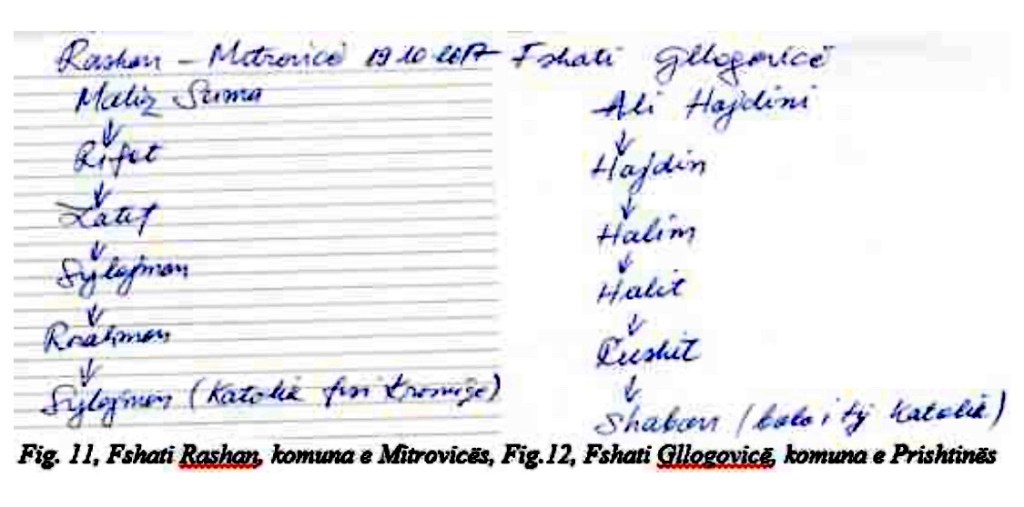 Rashan - Mitrovicë 19.10.2017
Maliq Suma
Rifat
Latif
Sylejman
Rrahman
Sylejman (Katolik fisi
Fshati Gllogovicë
Ali Hajdini
Hajdin
Halim
Halit
Rushit
Shaban (baba i tij Katolik)
Fig. 11, Fshati Rashan, komuna e Mitrovicës, Fig.12, Fshati Gllogovicë, komuna e Prishtinës